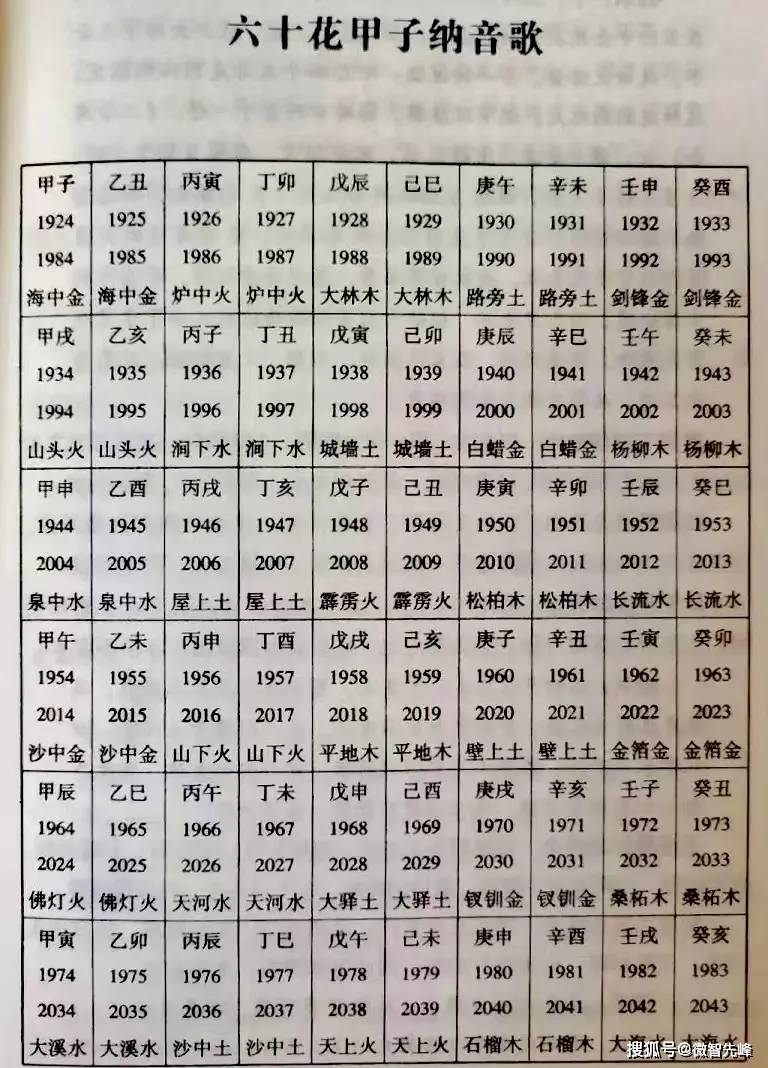 六十花甲子纳音歌
甲子 乙丑 丙寅 丁卯 戊辰 己巳 庚午 辛未 壬申 癸酉
1924 1925 1926 1927 1928 1929 1930 1931 1932 1933
1984 1985 1986 1987 1988 1989 1990 1991 1992 1993
海中金 海中金 炉中火 炉中火 大林木 大林木 路旁土 路旁土 剑锋金 剑锋金
甲戌 乙亥 丙子 丁丑 戊寅 己卯 庚辰 辛巳 壬午 癸未
1934 1935 1936 1937 1938 1939 1940 1941 1942 1943
1994 1995 1996 1997 1998 1999 2000 2001 2002 2003
山头火 山头火 涧下水 涧下水 城墙土 城墙土 白蜡金 白蜡金 杨柳木 杨柳木
甲申 乙酉 丙戌 丁亥 戊子 己丑 庚寅 辛卯 壬辰 癸巳
1944 1945 1946 1947 1948 1949 1950 1951 1952 1953
2004 2005 2006 2007 2008 2009 2010 2011 2012 2013
泉中水 泉中水 屋上土 屋上土 霹雳火 霹雳火 松柏木 松柏木 长流水 长流水
甲午 乙未 丙申 丁酉 戊戌 己亥 庚子 辛丑 壬寅 癸卯
1954 1955 1956 1957 1958 1959 1960 1961 1962 1963
2014 2015 2016 2017 2018 2019 2020 2021 2022 2023
沙中金 沙中金 山下火 山下火 平地木 平地木 壁上土 壁上土 金箔金 金箔金
甲辰 乙巳 丙午 丁未 戊申 己酉 庚戌 辛亥 壬子 癸丑
1964 1965 1966 1967 1968 1969 1970 1971 1972 1973
2024 2025 2026 2027 2028 2029 2030 2031 2032 2033
佛灯火 佛灯火 天河水 天河水 大驿土 大驿土 钗钏金 钗钏金 桑柘木 桑柘木
甲寅 乙卯 丙辰 丁巳 戊午 己未 庚申 辛酉 壬戌 癸亥
1974 1975 1976 1977 1978 1979 1980 1981 1982 1983
2034 2035 2036 2037 2038 2039 2040 2041 2042 2043
大溪水 大溪水 沙中土 沙中土 天上火 天上火 石榴木 石榴木 大海水 大海水
搜狐号@微智先峰